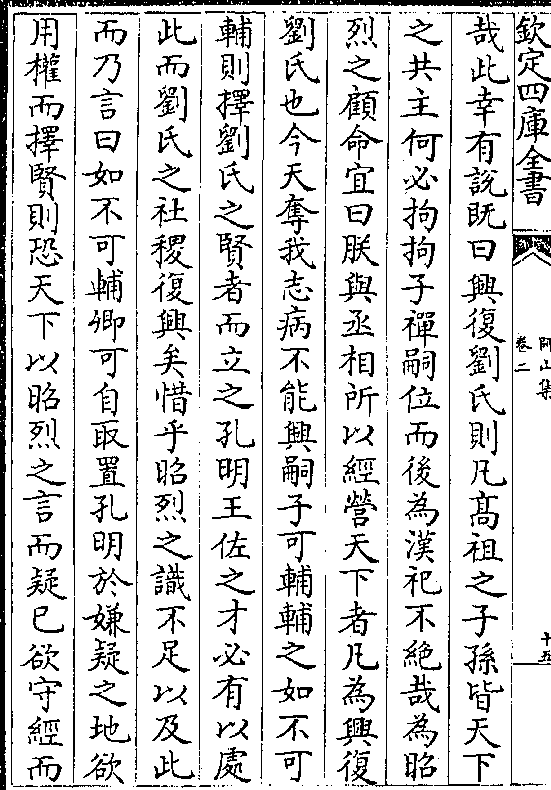 欽定四庫全書
師山集
卷二
十五
哉此幸有説既曰興復劉氏則凡髙祖之子孫皆天下
之共主何必拘拘子禪嗣位而後為漢祀不絶哉為昭
烈之顧命宜曰朕與丞相所以經營天下者凡為興復
劉氏也今天奪我志病不能興嗣子可輔輔之如不可
輔則擇劉氏之賢者而立之孔明王佐之才必有以處
此而劉氏之社稷復興矣惜乎昭烈之識不足以及此
而乃言曰如不可輔卿可自取置孔明於嫌疑之地欲
用權而擇賢則恐天下以昭烈之言而疑已欲守經而